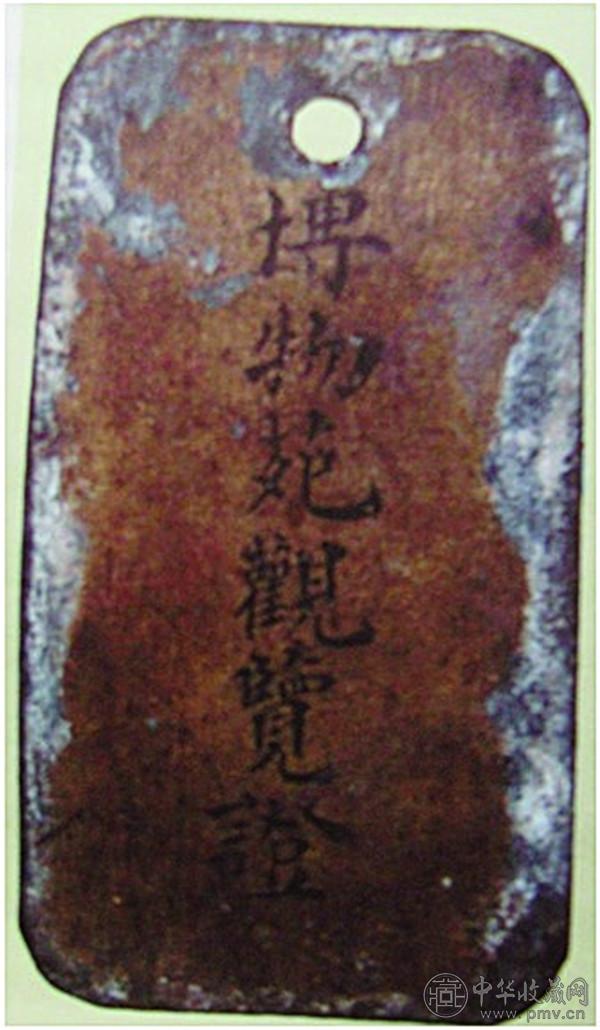 博物苑觀覽證
中华收藏网
www.pmv.cn